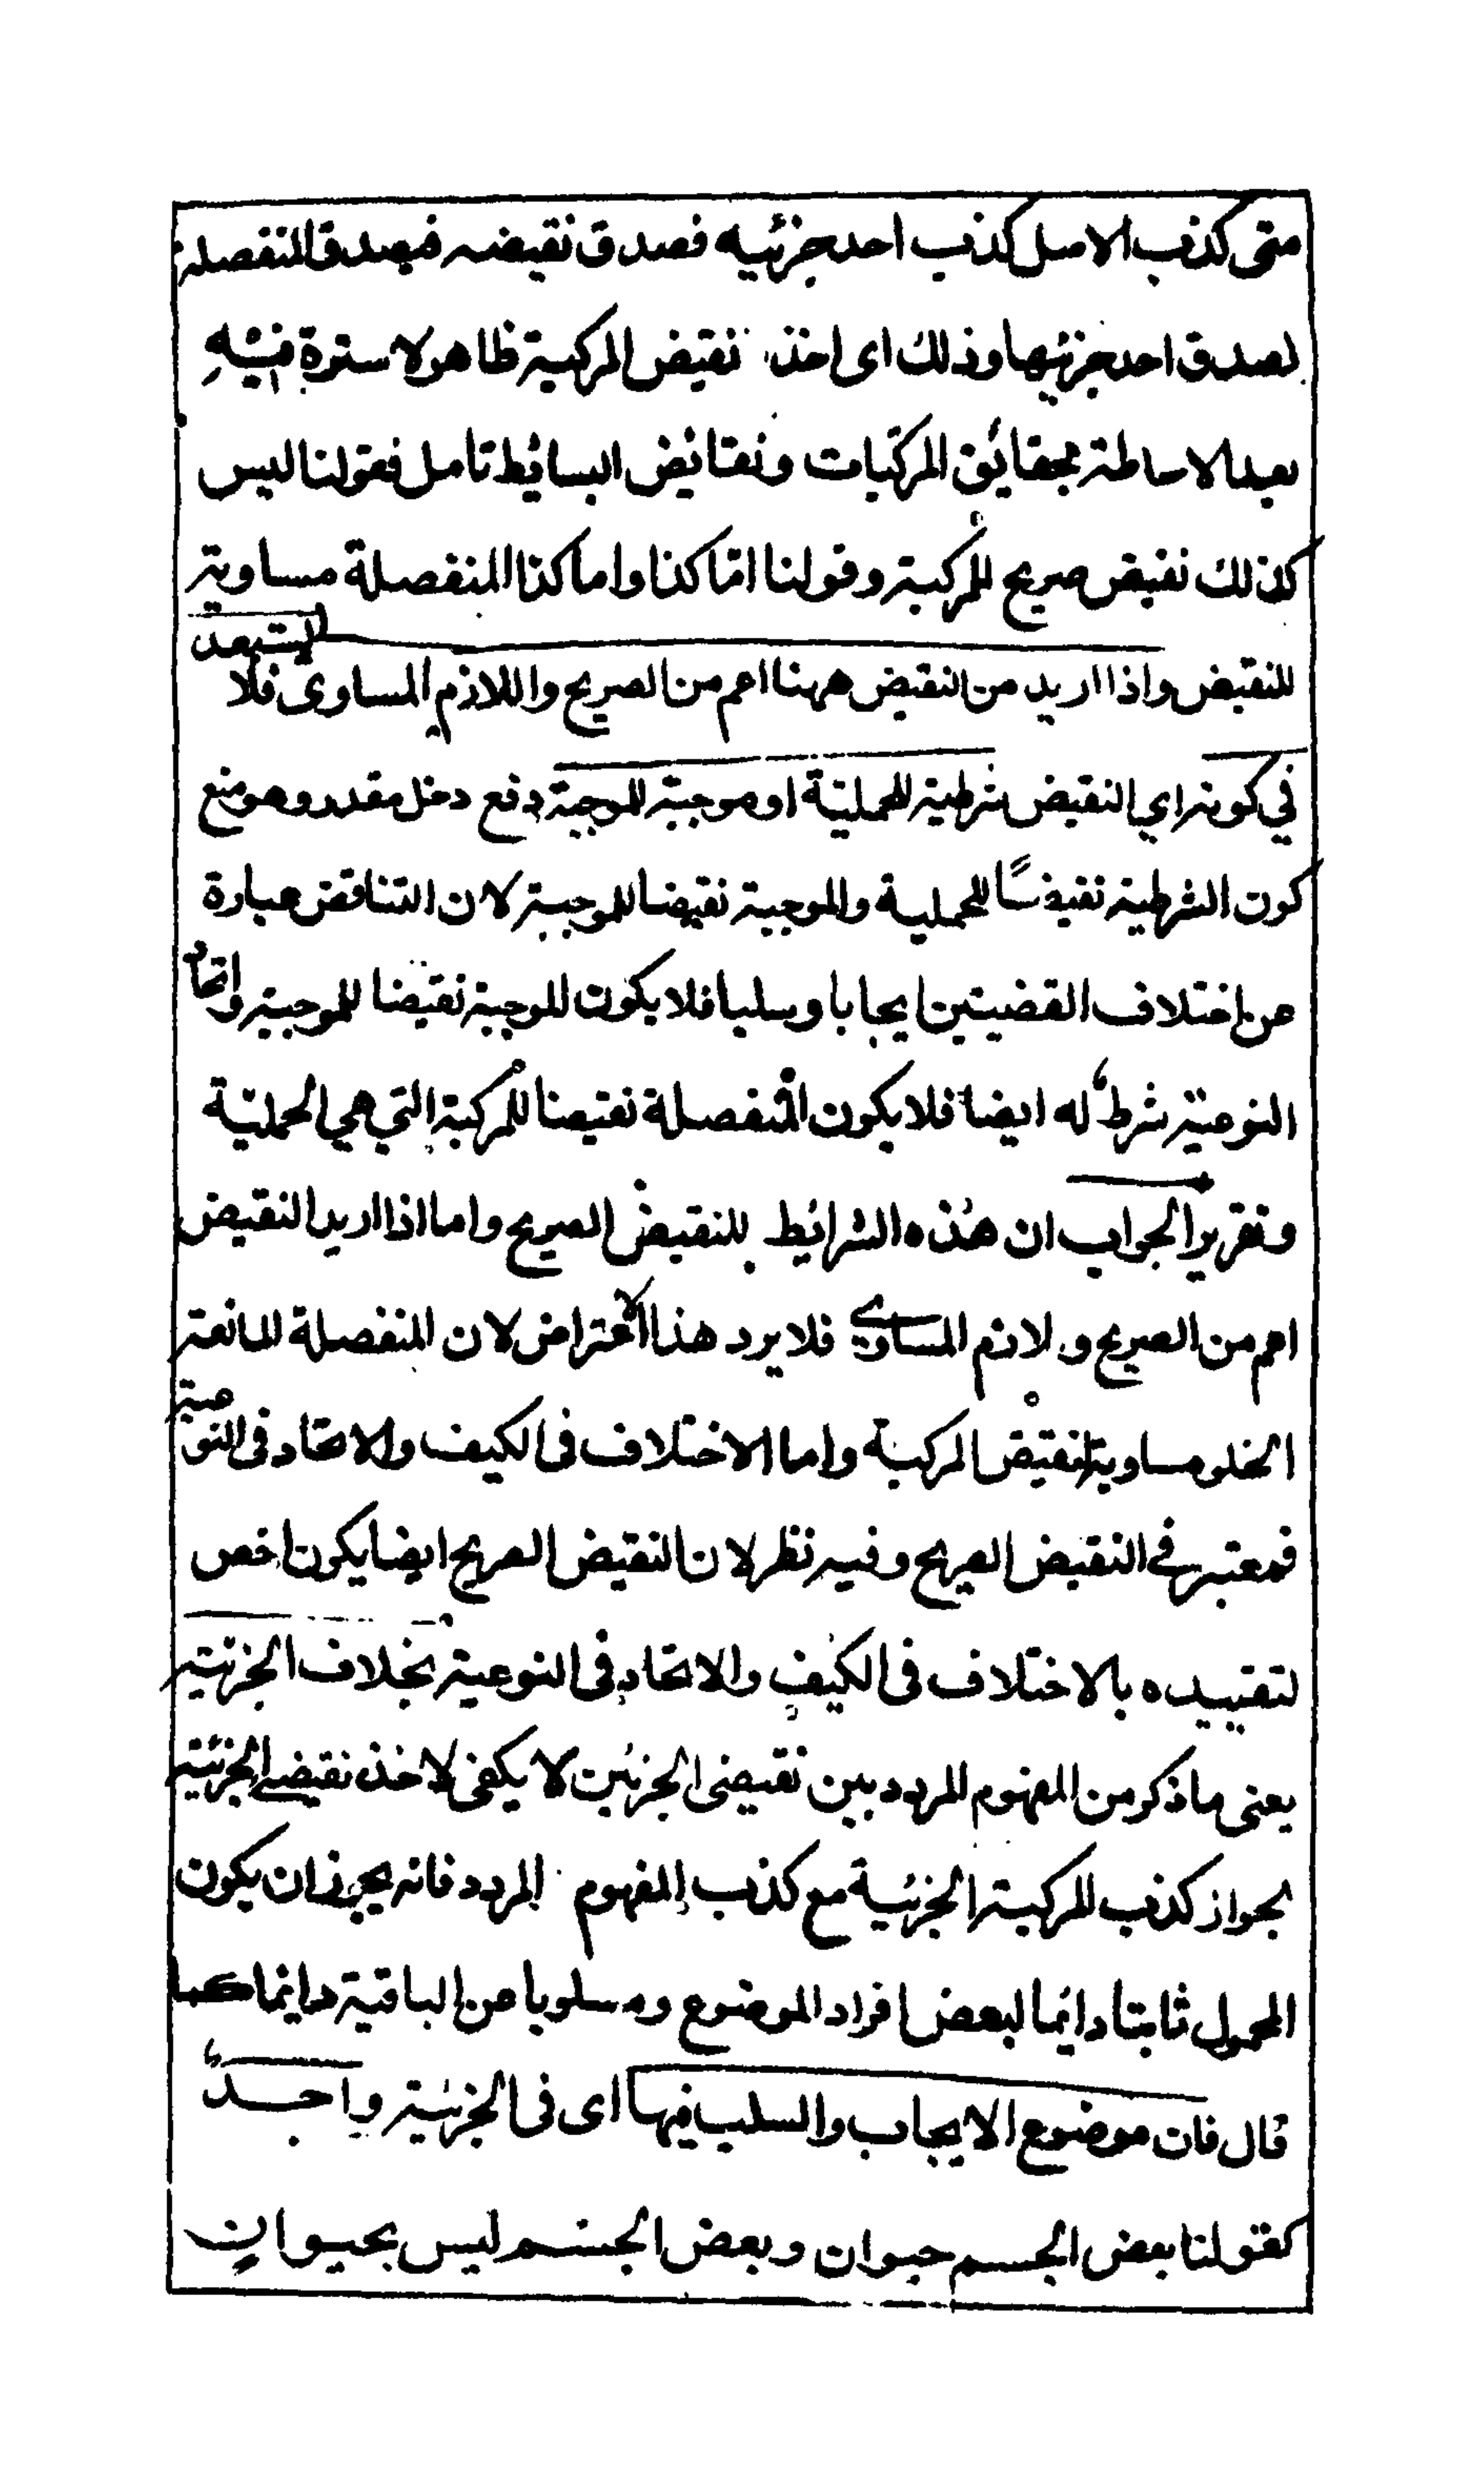 متى كذب الاصل كذب احد جزئيه فصدق نقيضه فيصدق المنفصلة
لصدق احد جزئيها وذلك اى اخذ نقيض المركبة ظاهر لا سترة فيه
بعد الاحاطة بحقايق المركبات ونقائض البسائط تامل فقولنا ليس
كذلك نقيض صريح للمركبة وقولنا اما كذا واما كذا المنفصلة مساوية
للنقيض واذا اريد من النقيض ههنا اعم من الصريح واللازم المساوى فلا يستبعد
في كونه اي النقيض شرطية للحملية او موجبة للموجبة دفع دخل مقدر وهو منع
كون الشرطية نقيضًا للحملية والموجبة نقيضا للموجبة لان التناقض عبارة
عن اختلاف القضيتين ايجابا وسلبا فلا يكون الموجبة نقيضا للموجبة واتحاد
النوعية شرط له ايضا فلا يكون المنفصلة نقيضا للمركبة التي هي الحملية
وتقرير الجواب ان هذه الشرائط للنقيض الصريح واما اذا اريد النقيض
اعم من الصريح ولازم المساوي فلا يرد هذا الاعتراض لان المنفصلة المانعة
الخلو مساوية لنقيض المركبة واما الاختلاف فى الكيف والاتحاد فى النوعية
فمعتبر في النقيض الصريح وفيه نظر لان النقيض الصريح ايضا يكون اخص
لتقييده بالاختلاف فى الكيف والاتحاد فى النوعية بخلاف الجزئية
يعنى ما ذكر من المفهوم المردد بين نقيضى الجزئين لا يكفى لاخذ نقيض الجزئية
لجواز كذب المركبة الجزئية مع كذب المفهوم المردد فانه يجوز ان يكون
المحمول ثابتا دائما لبعض افراد الموضوع ومسلوبا عن الباقية دائما كما
قال فان موضوع الايجاب والسلب فيها اى فى الجزئية واحدٌ
كقولنا بعض الجسم حيوان وبعض الجسم ليس بحيوانٍ